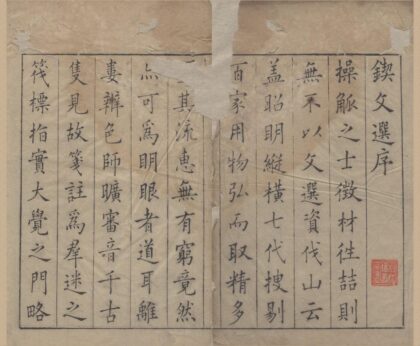 鍥文選序
操觚之士徵材徃詰則
無不以文選資伐山云
蓋昭明縱橫七代搜剔
百家用物弘而取精多
其流惠無有窮竟然
亦可為明眼者道耳離
婁辨色師曠審音千古
隻見故箋註為羣迷之
筏標指實大覺之門略